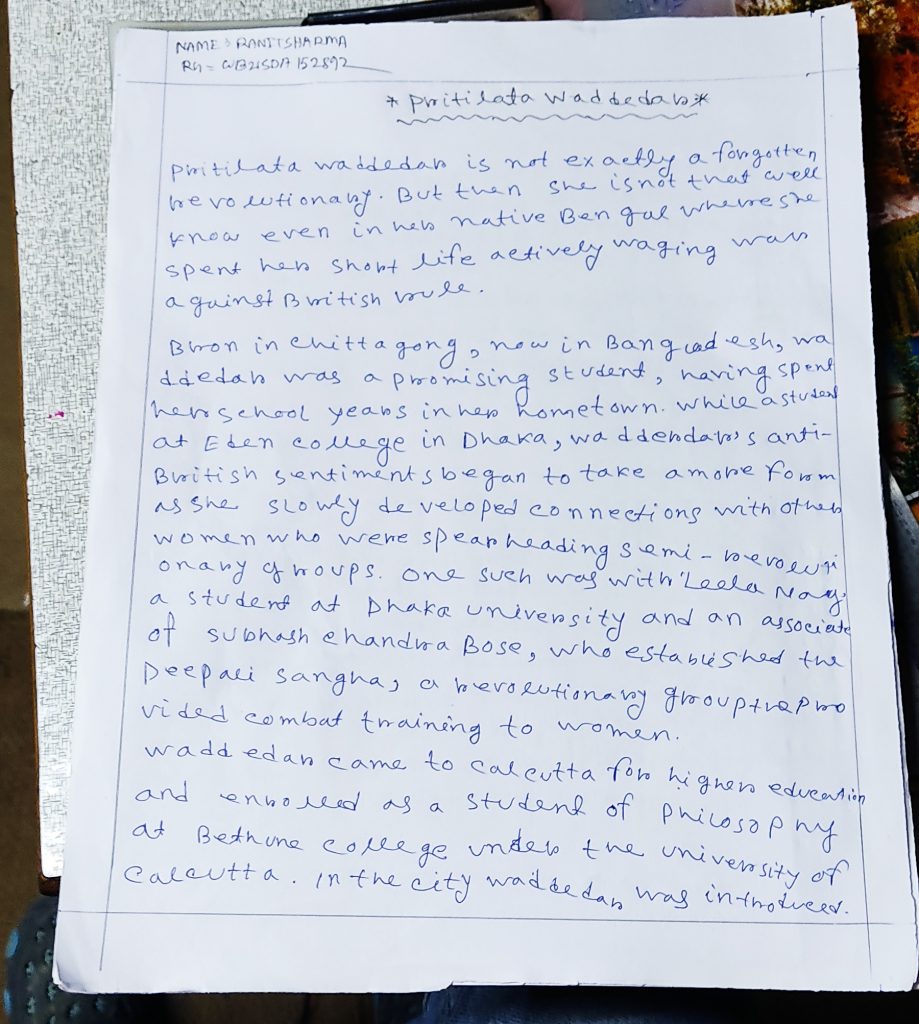 NAME : RANIT SHARMA
RN = WB21SDA152892
* Pritilata Waddedar *
Pritilata waddedar is not exactly a forgotten
revolutionary. But then she is not that well
know even in her native Bengal where she
spent her short life actively waging war
against British rule.
Bron in Chittagong, now in Bangladesh, wa
ddedar was a promising student, having spent
her school years in her hometown. While a student
at Eden college in Dhaka, waddendar's anti-
British sentiments began to take a more form
as she slowly developed connections with other
women who were spearheading semi-revoluti
onary groups. One such was with 'Leela Nag,
a student at Dhaka university and an associate
of Subhash Chandra Bose, who established the
Deepali Sangha, a revolutionary group tha pro
vided combat training to women.
waddedar came to Calcutta for higher education
and enrolled as a student of Philosophy
at Bethune college under the university of
Calcutta. In the city waddedar was introduced.